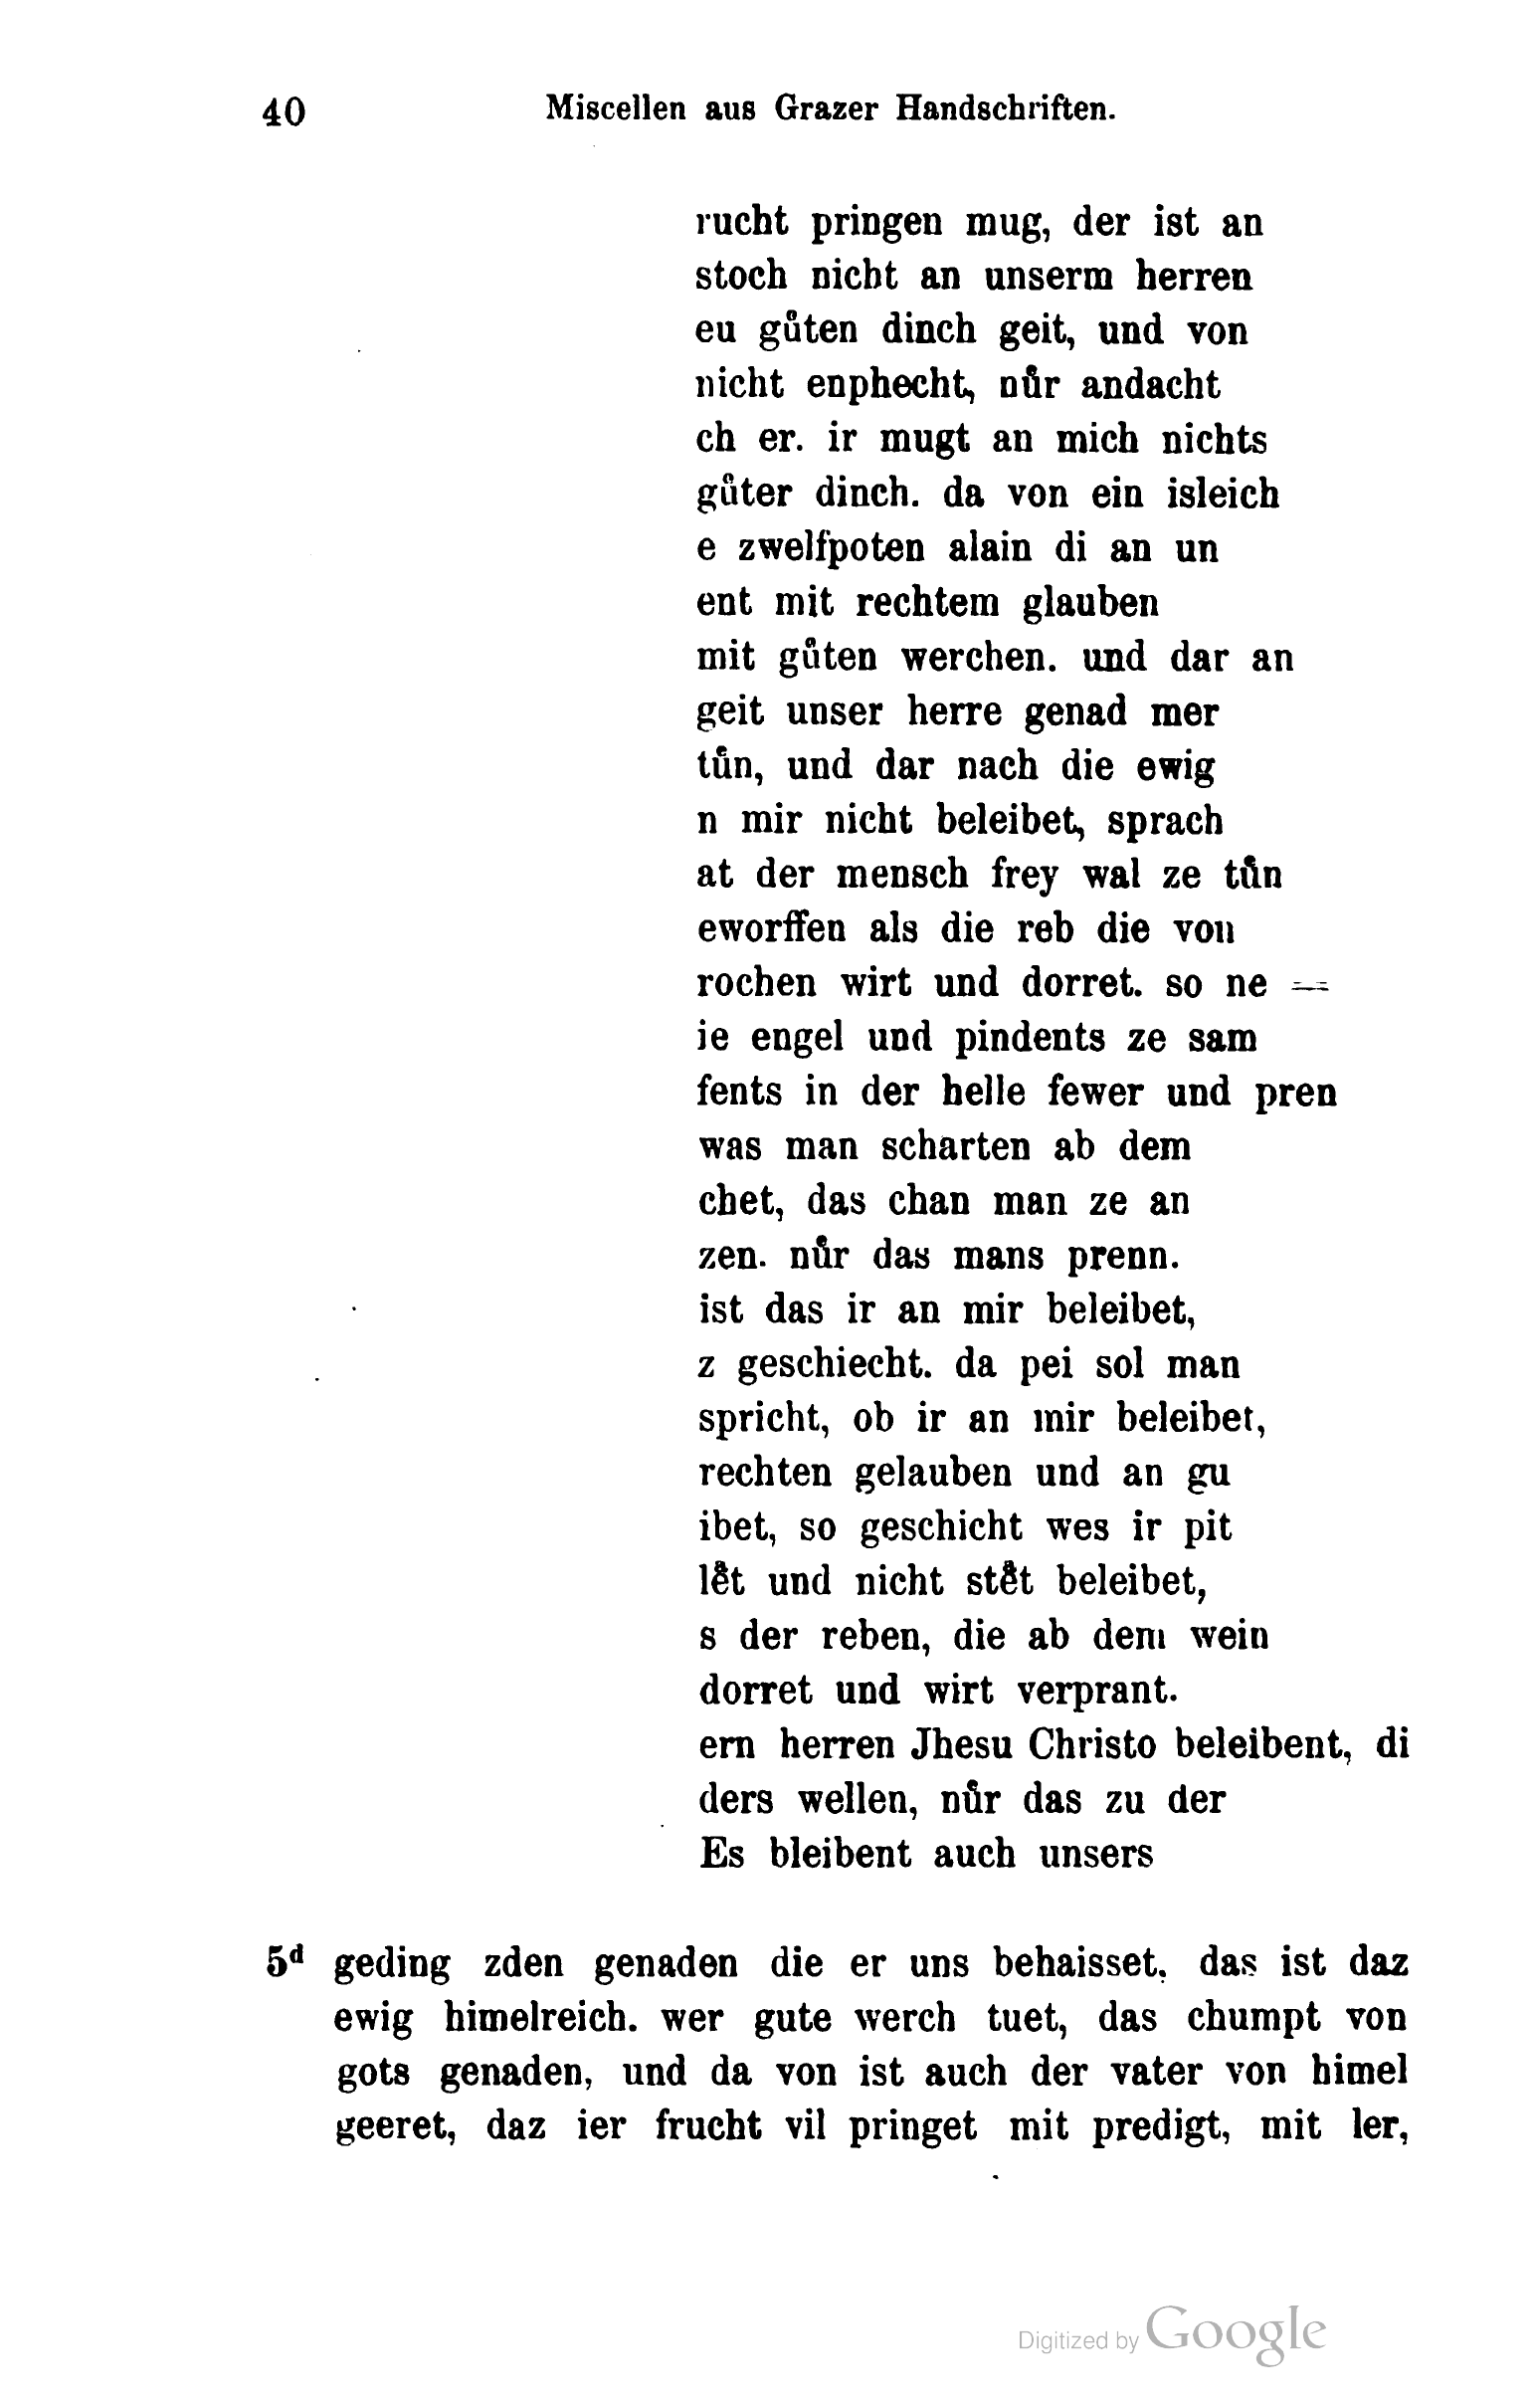 40 Miscellen aus Grazer Handschriften.
rucht pringen mug, der ist an
stoch nicht an unserm herren
eu gůten dinch geit, und von
nicht enphecht, nůr andacht
ch er. ir mugt an mich nichts
gůter dinch. da von ein isleich
e zwelfpoten alain di an un
ent mit rechtem glauben
mit gůten werchen. und dar an
geit unser herre genad mer
tůn, und dar nach die ewig
n mir nicht beleibet, sprach
at der mensch frey wal ze tůn
eworffen als die reb die von
rochen wirt und dorret. so ne =
ie engel und pindents ze sam
fents in der helle fewer und pren
was man scharten ab dem
chet, das chan man ze an
zen. nůr das mans prenn.
ist das ir an mir beleibet,
z geschiecht. da pei sol man
spricht, ob ir an mir beleibet,
rechten gelauben und an gu
ibet, so geschicht wes ir pit
leͣt und nicht steͣt beleibet,
s der reben, die ab dem wein
dorret und wirt verprant.
ern herren Jhesu Christo beleibent, di
ders wellen, nůr das zu der
Es bleibent auch unsers
5ᵈ geding zden genaden die er uns behaisset. das ist daz
ewig himelreich. wer gute werch tuet, das chumpt von
gots genaden, und da von ist auch der vater von himel
geeret, daz ier frucht vil pringet mit predigt, mit ler,
Digitized by Google